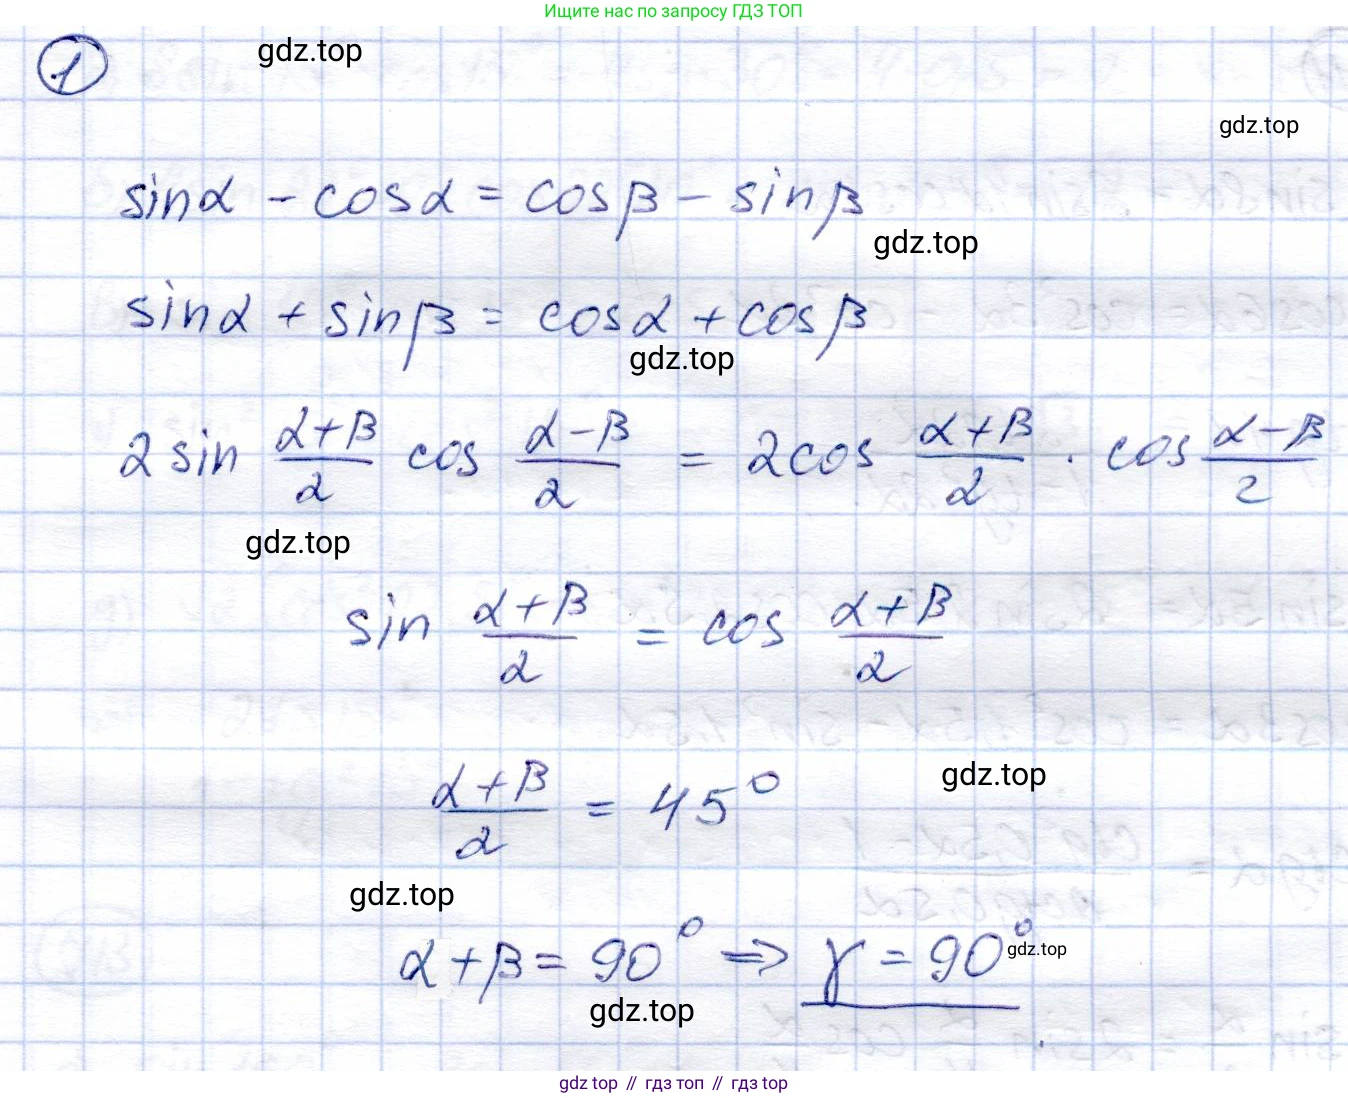 Ищите нас по запросу ГДЗ ТОП
1
gdz.top
gdz.top
sinα - cosα = cosβ - sinβ
gdz.top
sinα + sinβ = cosα + cosβ
gdz.top
2 sin (α+β)/2 cos (α-β)/2 = 2cos (α+β)/2 · cos (α-β)/2
gdz.top
sin (α+β)/2 = cos (α+β)/2
(α+β)/2 = 45°
gdz.top
gdz.top
α+β = 90° => γ = 90°
gdz.top
gdz.top
gdz top // гдз топ // gdz top